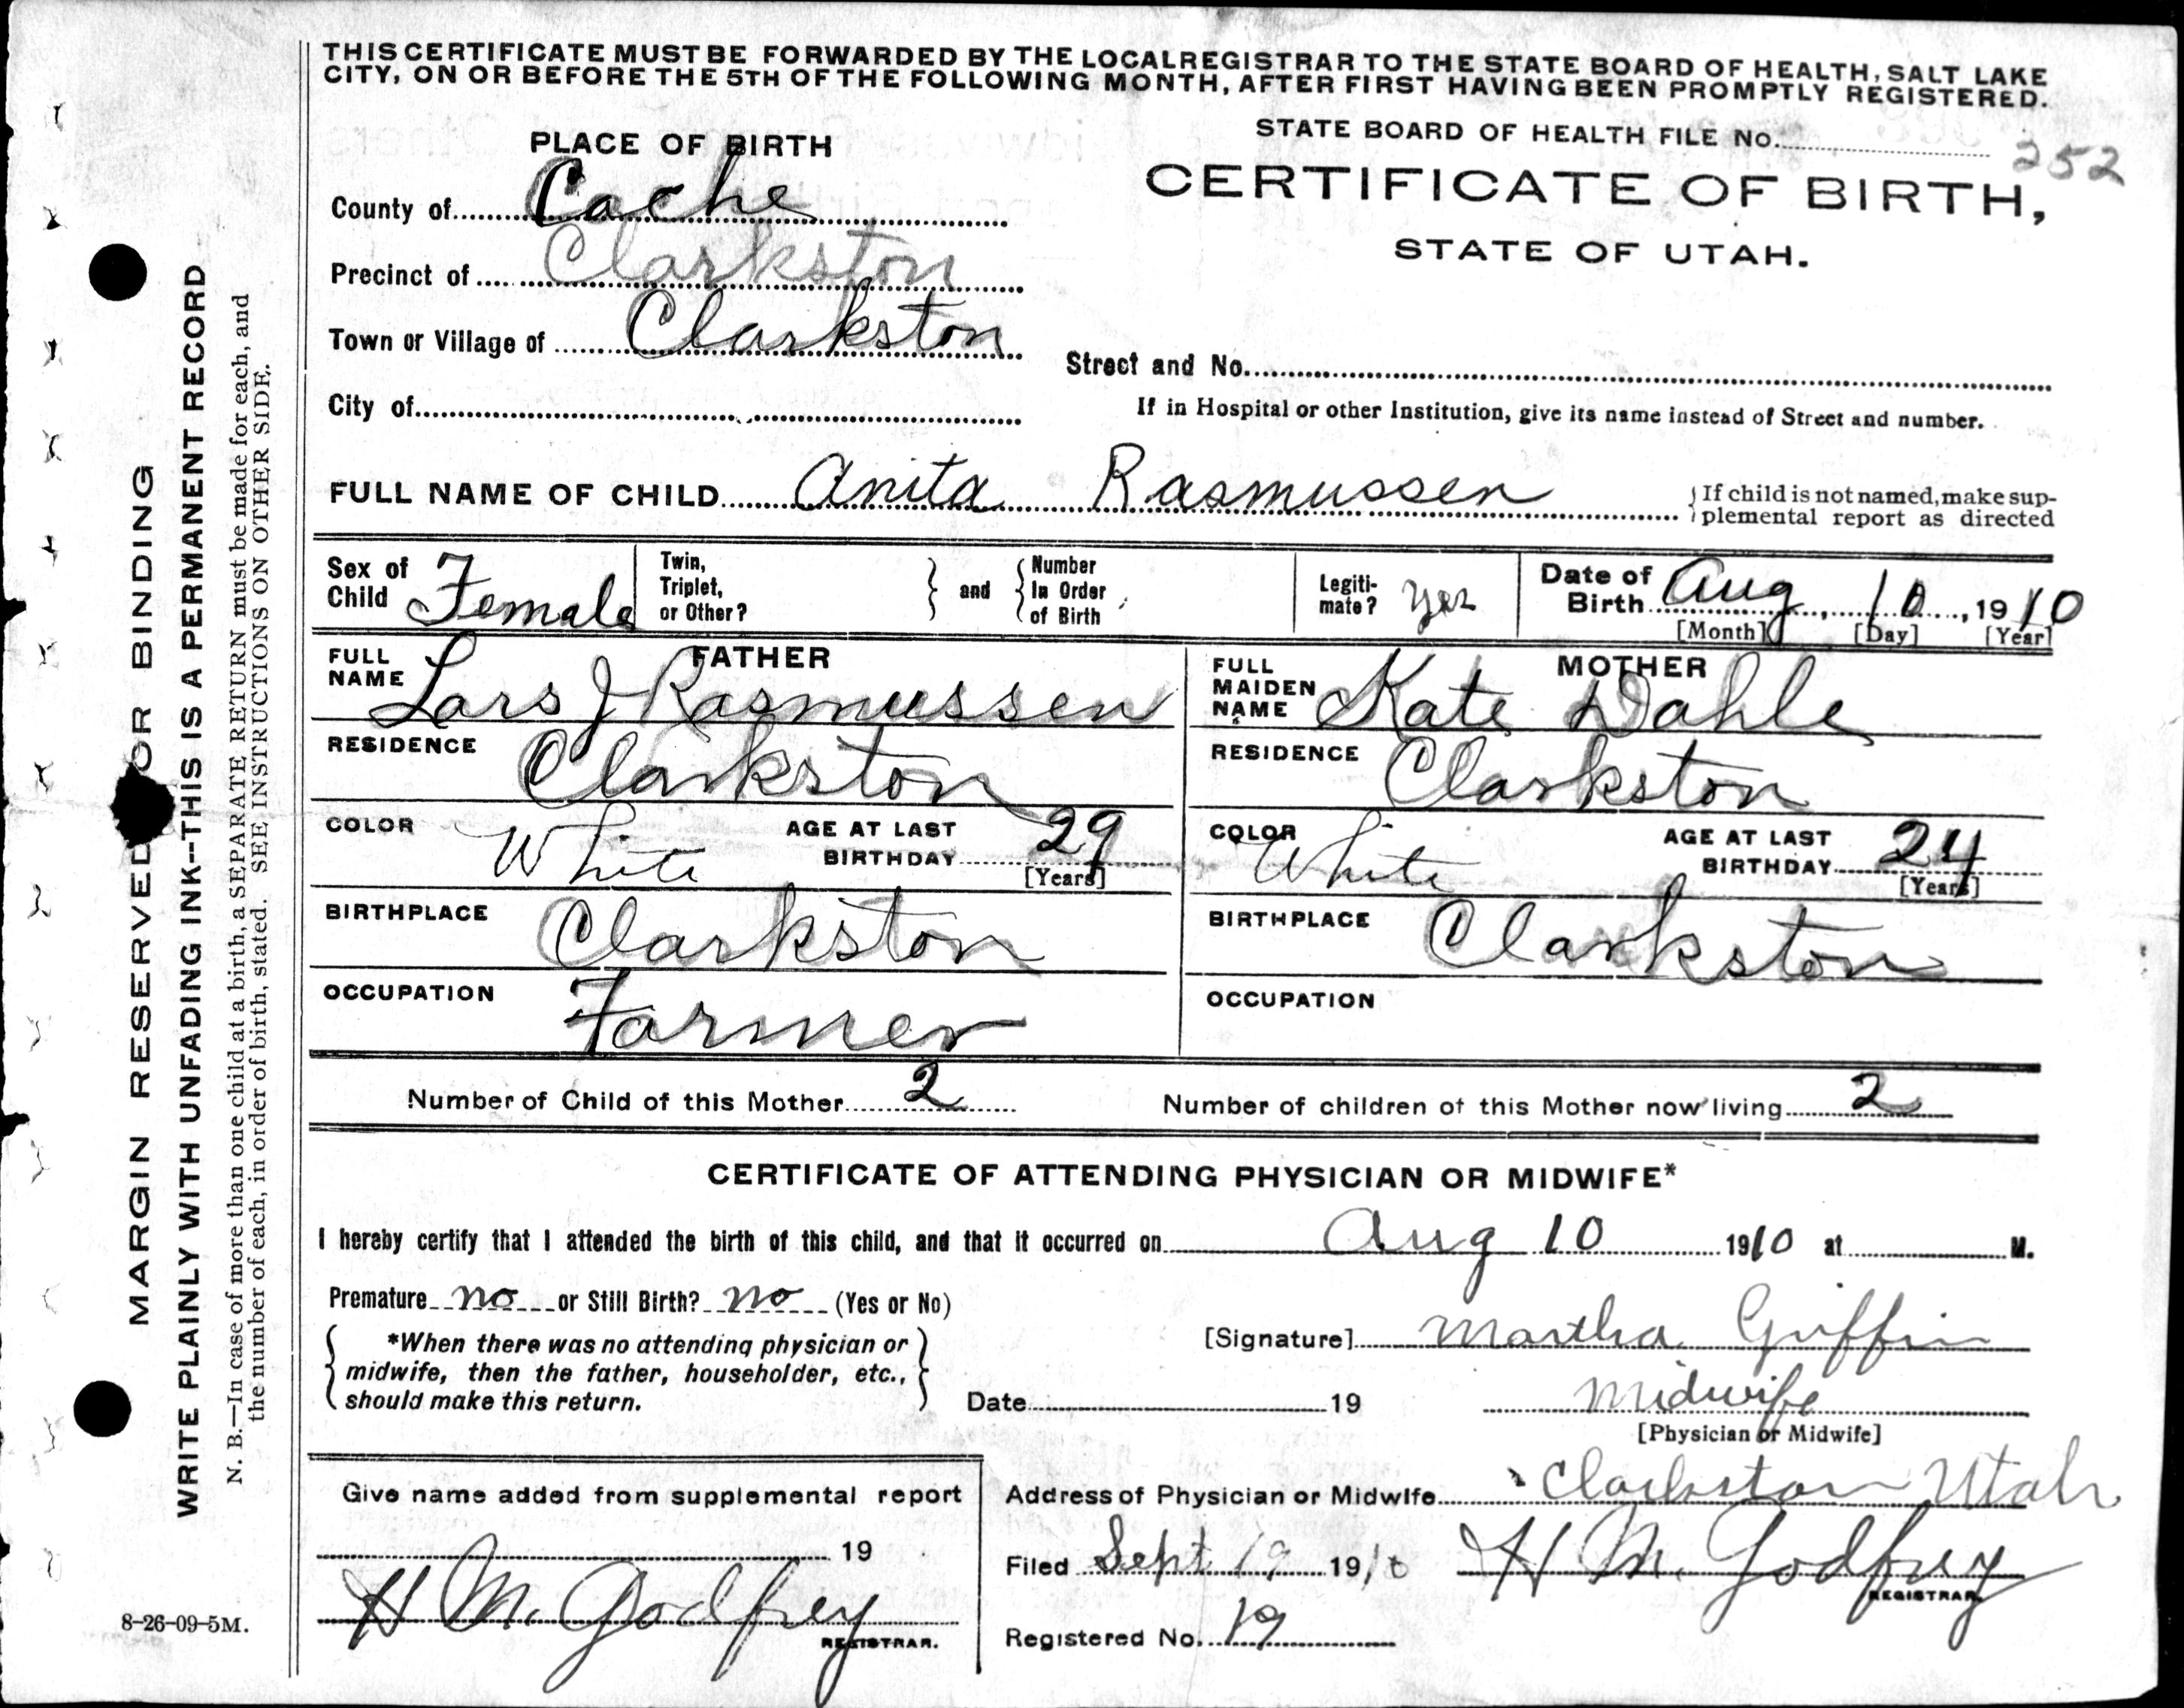 THIS CERTIFICATE MUST BE FORWARDED BY THE LOCAL REGISTRAR TO THE STATE BOARD OF HEALTH, SALT LAKE
CITY, ON OR BEFORE THE 5TH OF THE FOLLOWING MONTH, AFTER FIRST HAVING BEEN PROMPTLY REGISTERED.
STATE BOARD OF HEALTH FILE No. 252
CERTIFICATE OF BIRTH,
STATE OF UTAH.
PLACE OF BIRTH
County of Cache
Precinct of Clarkston
Town or Village of Clarkston
Street and No.
City of
If in Hospital or other Institution, give its name instead of Street and number.
FULL NAME OF CHILD Anita Rasmussen
If child is not named, make sup-
plemental report as directed
Sex of Child Female
Twin, Triplet, or Other? and Number In Order of Birth
Legiti-mate? Yes
Date of Birth Aug, 10, 1910
[Month] [Day] [Year]
FATHER
FULL NAME Lars J Rasmussen
RESIDENCE Clarkston
COLOR White AGE AT LAST BIRTHDAY 29
[Years]
BIRTHPLACE Clarkston
OCCUPATION Farmer
MOTHER
FULL MAIDEN NAME Kate Dahle
RESIDENCE Clarkston
COLOR White AGE AT LAST BIRTHDAY 24
[Years]
BIRTHPLACE Clarkston
OCCUPATION
Number of Child of this Mother 2 Number of children of this Mother now living 2
CERTIFICATE OF ATTENDING PHYSICIAN OR MIDWIFE*
I hereby certify that I attended the birth of this child, and that it occurred on Aug 10 1910 at M.
Premature no or Still Birth? no (Yes or No)
*When there was no attending physician or
midwife, then the father, householder, etc.,
should make this return.
[Signature] Martha Griffin
Date 19 Midwife
[Physician or Midwife]
Give name added from supplemental report
19
H M. Godfrey
REGISTRAR.
Address of Physician or Midwife Clarkston Utah
Filed Sept 19 1910 H M. Godfrey
REGISTRAR.
Registered No. 19
8-26-09-5M.
MARGIN RESERVED FOR BINDING
WRITE PLAINLY WITH UNFADING INK--THIS IS A PERMANENT RECORD
N. B.—In case of more than one child at a birth, a SEPARATE RETURN must be made for each, and
the number of each, in order of birth, stated. SEE INSTRUCTIONS ON OTHER SIDE.